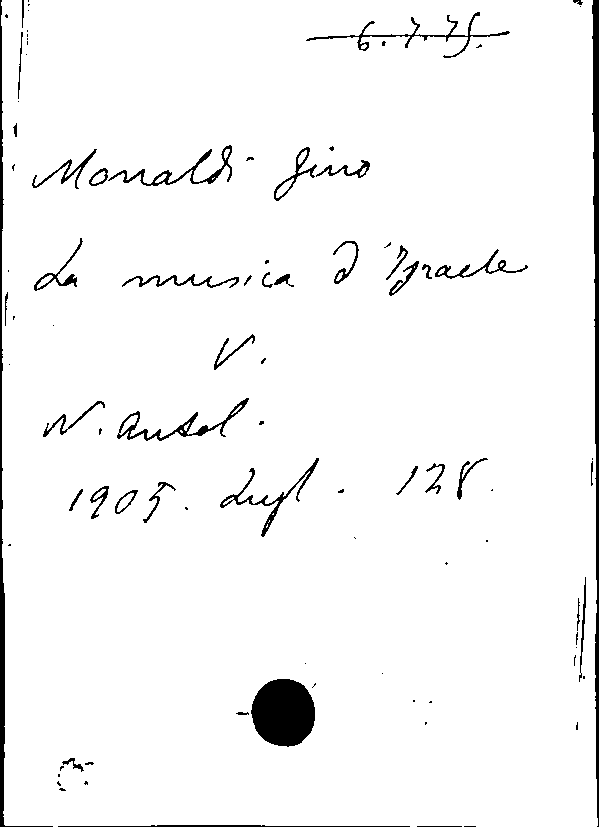 6.7.75.
Monaldi Gino
La musica d'Israele
V.
N. Antol.
1905. Lugl. 128.